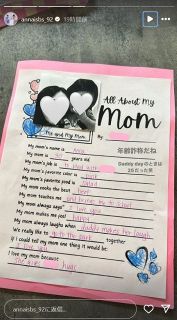 annaisbs_92 19時間前
All About My
Mom
Me and My Mom
By
年齢詐称だね
Daddy dayのときは
25だった笑
My mom's name is
My mom is years old
My mom's job is
My mom's favorite color is
My mom's favorite food is salad
My mom cooks the best
My mom teaches me
My mom always says " I love you
My mom makes me
My mom always laughs when daddy makes her laugh
We really like to go to the park together
If I could tell my mom one thing it would be:
I love you
I love my mom because
She gives hugs
annaisbs_92に返信...